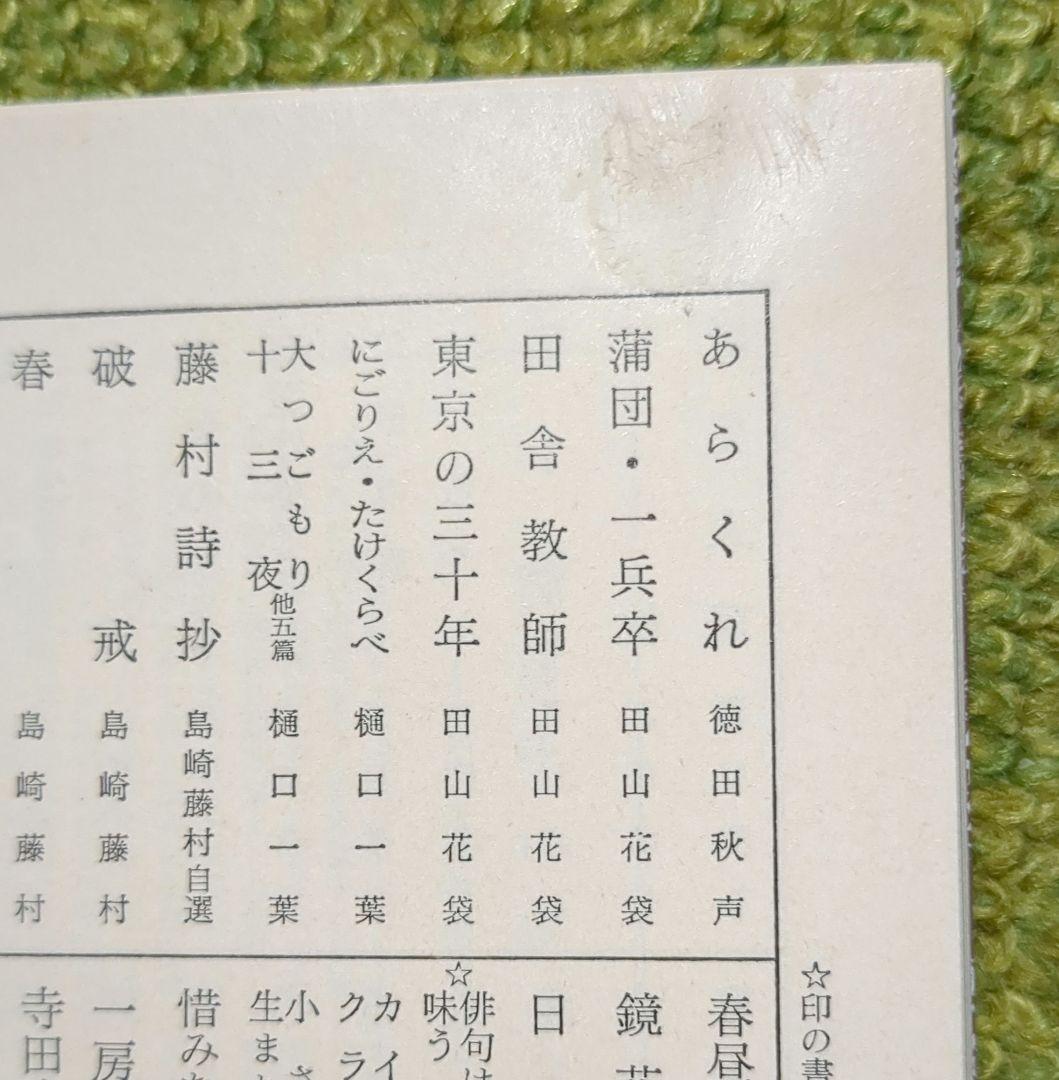 ☆印の書
あらくれ 徳田秋声
蒲団・一兵卒 田山花袋
田舎教師 田山花袋
東京の三十年 田山花袋
にごりえ・たけくらべ 樋口一葉
大つごもり
十三夜 他五篇 樋口一葉
藤村詩抄 島崎藤村自選
破戒 島崎藤村
春 島崎藤村
春昼
鏡花
日
☆俳句は
味う
カイ
クラ
小さ
生まれ
惜みな
一房
寺田